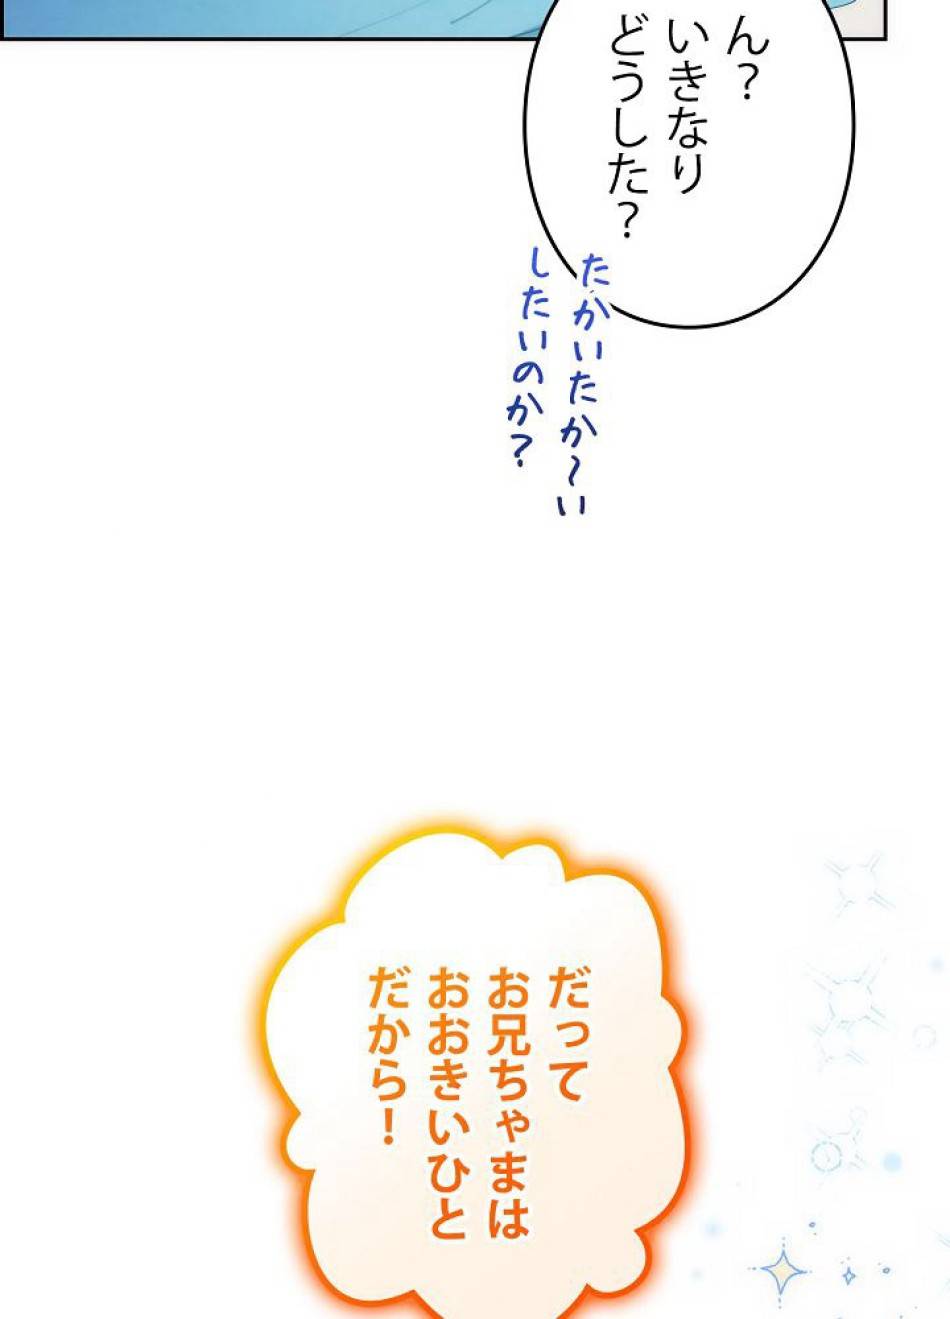 ん？
いきなり
どうした？
たかいたか〜い
したいのか？
だって
お兄ちゃまは
おおきいひと
だから！